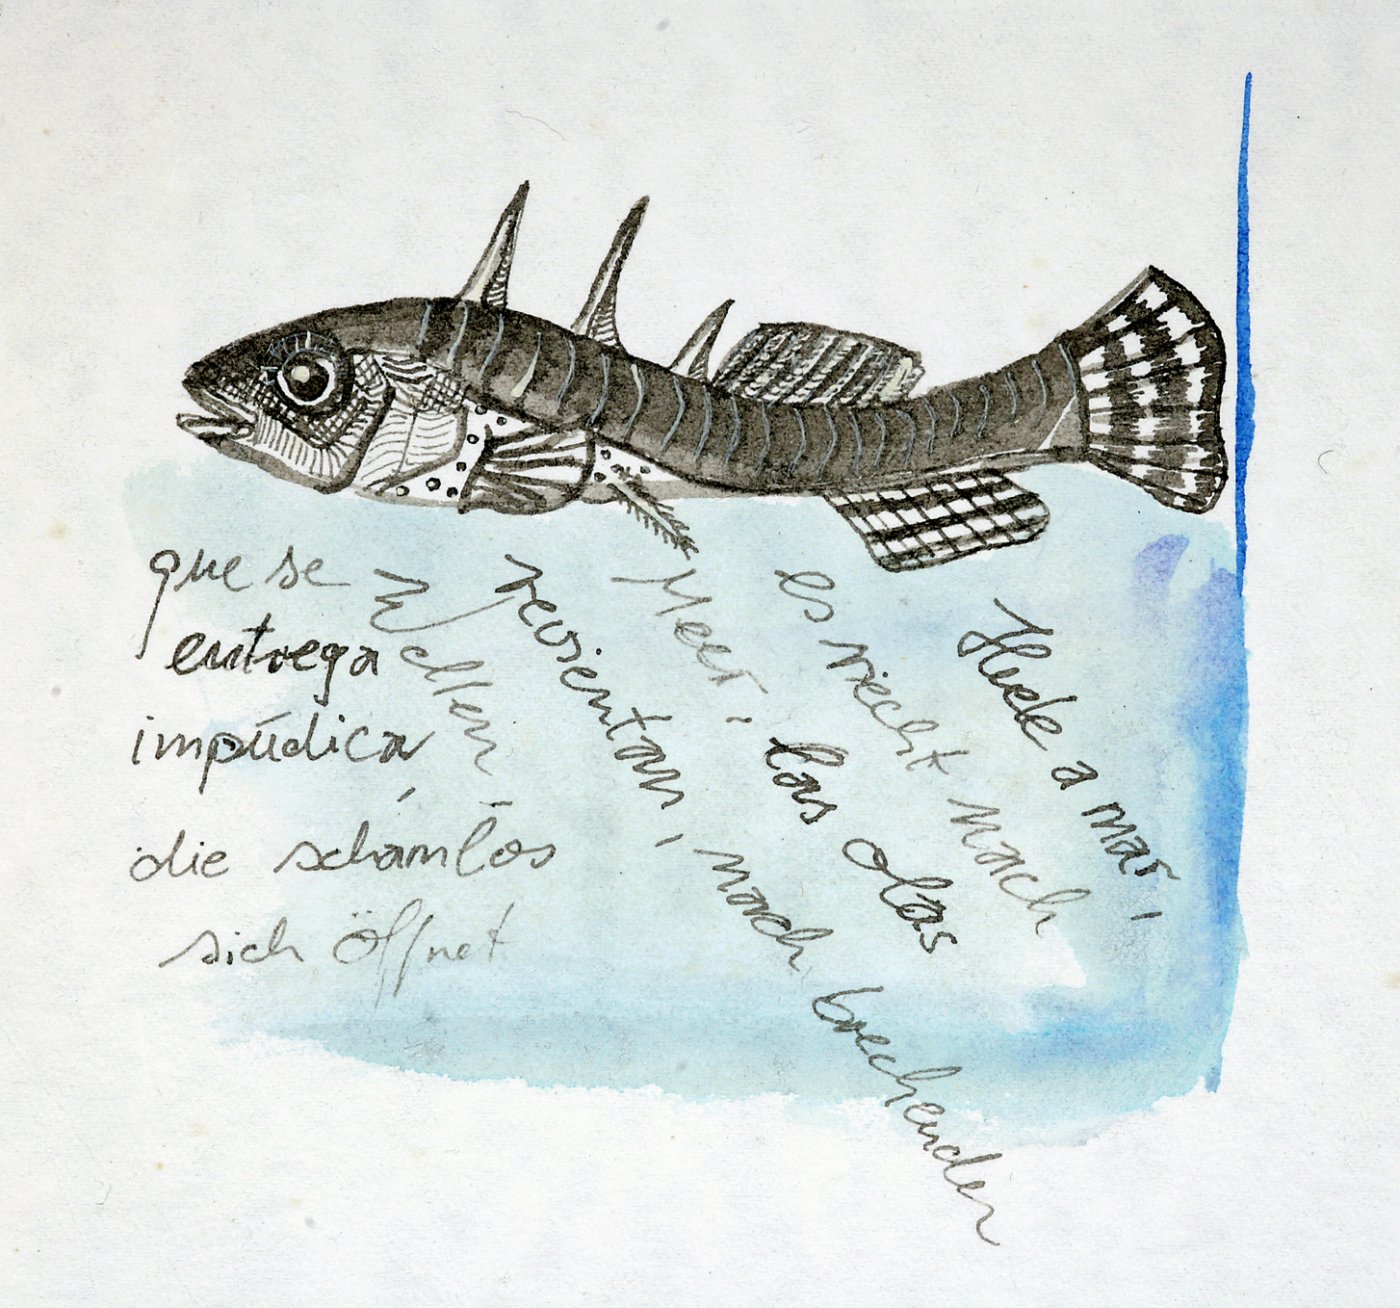 que se
entrega
impúdica,
die schamlos
sich öffnet
Wellen,
revientan, nach brechenden
Meer, las olas
es riecht nach
Huele a mar,